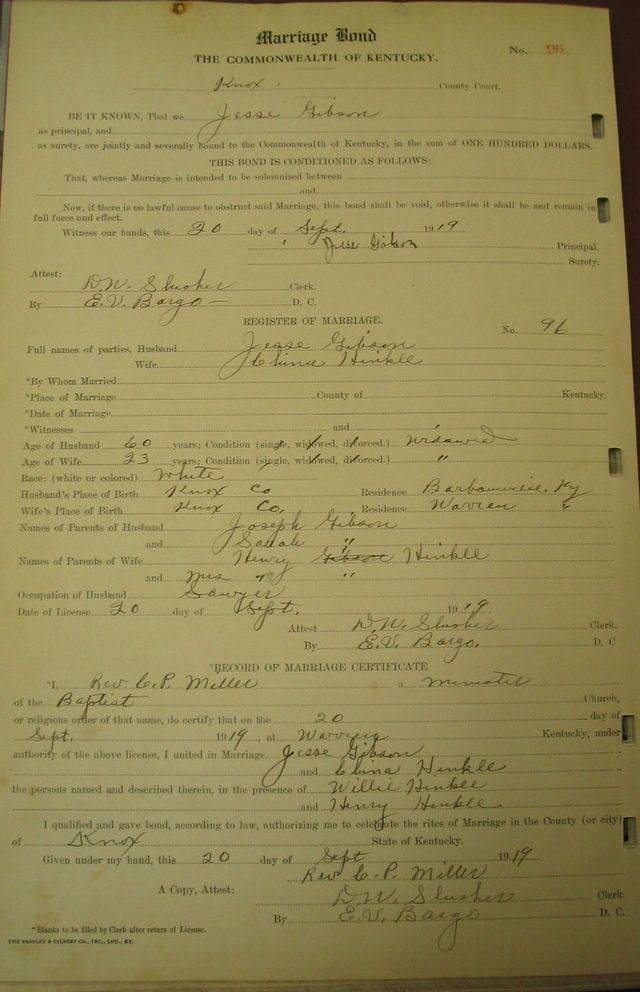 Marriage Bond
No. 96
THE COMMONWEALTH OF KENTUCKY.
Knox County Court.
BE IT KNOWN, That we Jesse Gibson
as principal, and
as surety, are jointly and severally bound to the Commonwealth of Kentucky, in the sum of ONE HUNDRED DOLLARS.
THIS BOND IS CONDITIONED AS FOLLOWS:
That, whereas Marriage is intended to be solemnized between
and
Now, if there is no lawful cause to obstruct said Marriage, this bond shall be void, otherwise it shall be and remain in
full force and effect.
Witness our hands, this 20 day of Sept. 1919
Jess Gibson Principal.
Surety.
Attest:
D.W. Slusher Clerk.
By E.V. Bargo D. C.
REGISTER OF MARRIAGE.
No. 96
Full names of parties, Husband Jesse Gibson
Wife China Hinkle
*By Whom Married
*Place of Marriage County of Kentucky.
*Date of Marriage
*Witnesses and
Age of Husband 60 years; Condition (single, widowed, divorced.) Widowed
Age of Wife 23 years; Condition (single, widowed, divorced.) "
Race: (white or colored) White
Husband's Place of Birth Knox Co Residence Barbourville, Ky
Wife's Place of Birth Knox Co, Residence Warren "
Names of Parents of Husband Joseph Gibson
and Sarah "
Names of Parents of Wife Henry Gibson Hinkle
and Mrs " "
Occupation of Husband Sawyer
Date of License 20 day of Sept. 1919
Attest D.W. Slusher Clerk.
By E.V. Bargo. D. C
*RECORD OF MARRIAGE CERTIFICATE
*I, Rev C.P. Miller a minister
of the Baptist Church,
or religious order of that name, do certify that on the 20 day of
Sept. 1919, at Warren Kentucky, under
authority of the above license, I united in Marriage Jesse Gibson
and China Hinkle
the persons named and described therein, in the presence of Willie Hinkle
and Henry Hinkle
I qualified and gave bond, according to law, authorizing me to celebrate the rites of Marriage in the County (or city)
of Knox State of Kentucky.
Given under my hand, this 20 day of Sept 1919
Rev C.P. Miller
A Copy, Attest: D.W. Slusher Clerk.
By E.V. Bargo D. C.
*Blanks to be filled by Clerk after return of License.
THE BRADLEY & GILBERT CO., INC., LOU., KY.